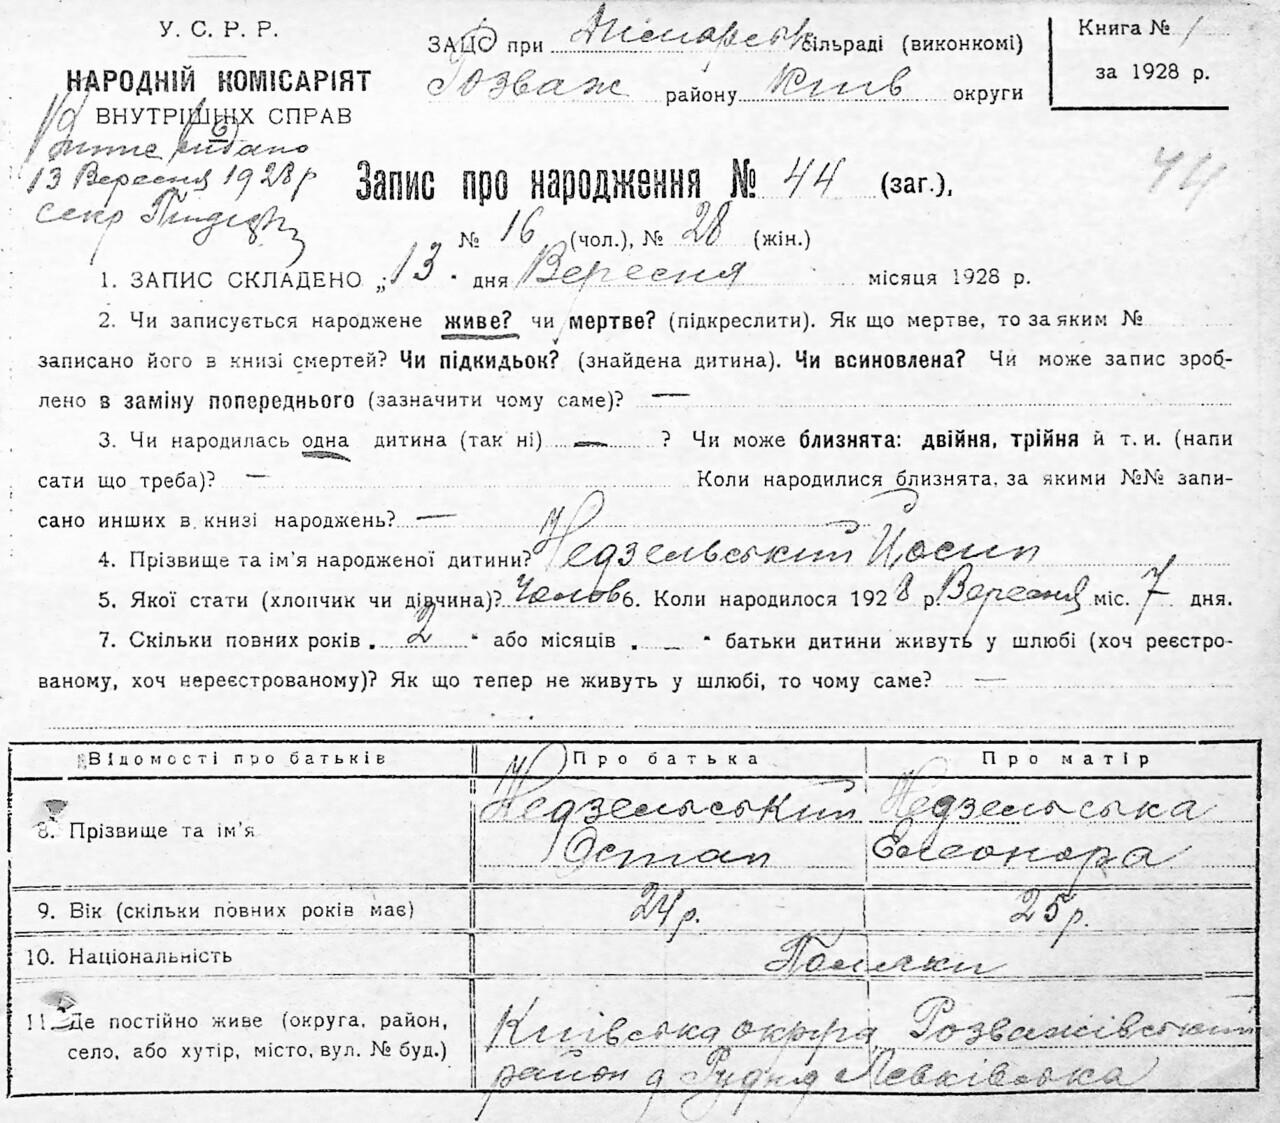 У. С. Р. Р.
НАРОДНІЙ КОМІСАРІЯТ
ВНУТРІШНІХ СПРАВ
видано
13 Вересня 1928 р
секр
ЗАЦС при сільраді (виконкомі)
Розваж району Київ округи
Книга № 1
за 1928 р.
44
Запис про народження № 44 (заг.),
№ 16 (чол.), № 28 (жін.)
1. ЗАПИС СКЛАДЕНО „13" дня Вересня місяця 1928 р.
2. Чи записується народжене живе? чи мертве? (підкреслити). Як що мертве, то за яким №
записано його в книзі смертей? Чи підкидьок? (знайдена дитина). Чи всиновлена? Чи може запис зроб-
лено в заміну попереднього (зазначити чому саме)? —
3. Чи народилась одна дитина (так ні) — ? Чи може близнята: двійня, трійня й т. и. (напи
сати що треба)? — Коли народилися близнята, за якими №№ запи-
сано инших в книзі народжень? —
4. Прізвище та ім'я народженої дитини? Недзельський Йосип
5. Якої стати (хлопчик чи дівчина)? Чолов 6. Коли народилося 1928 р. Вересня міс. 7 дня.
7. Скільки повних років „2" або місяців „—" батьки дитини живуть у шлюбі (хоч реєстро-
ваному, хоч нереєстрованому)? Як що тепер не живуть у шлюбі, то чому саме? —
Відомості про батьків Про батька Про матір
8. Прізвище та ім'я Недзельський Остап Недзельська Елеонора
9. Вік (скільки повних років має) 24 р. 25 р.
10. Національність Поляки
11. Де постійно живе (округа, район, Київська округа Розважівський
село, або хутір, місто, вул. № буд.) район д Рудня Левківська